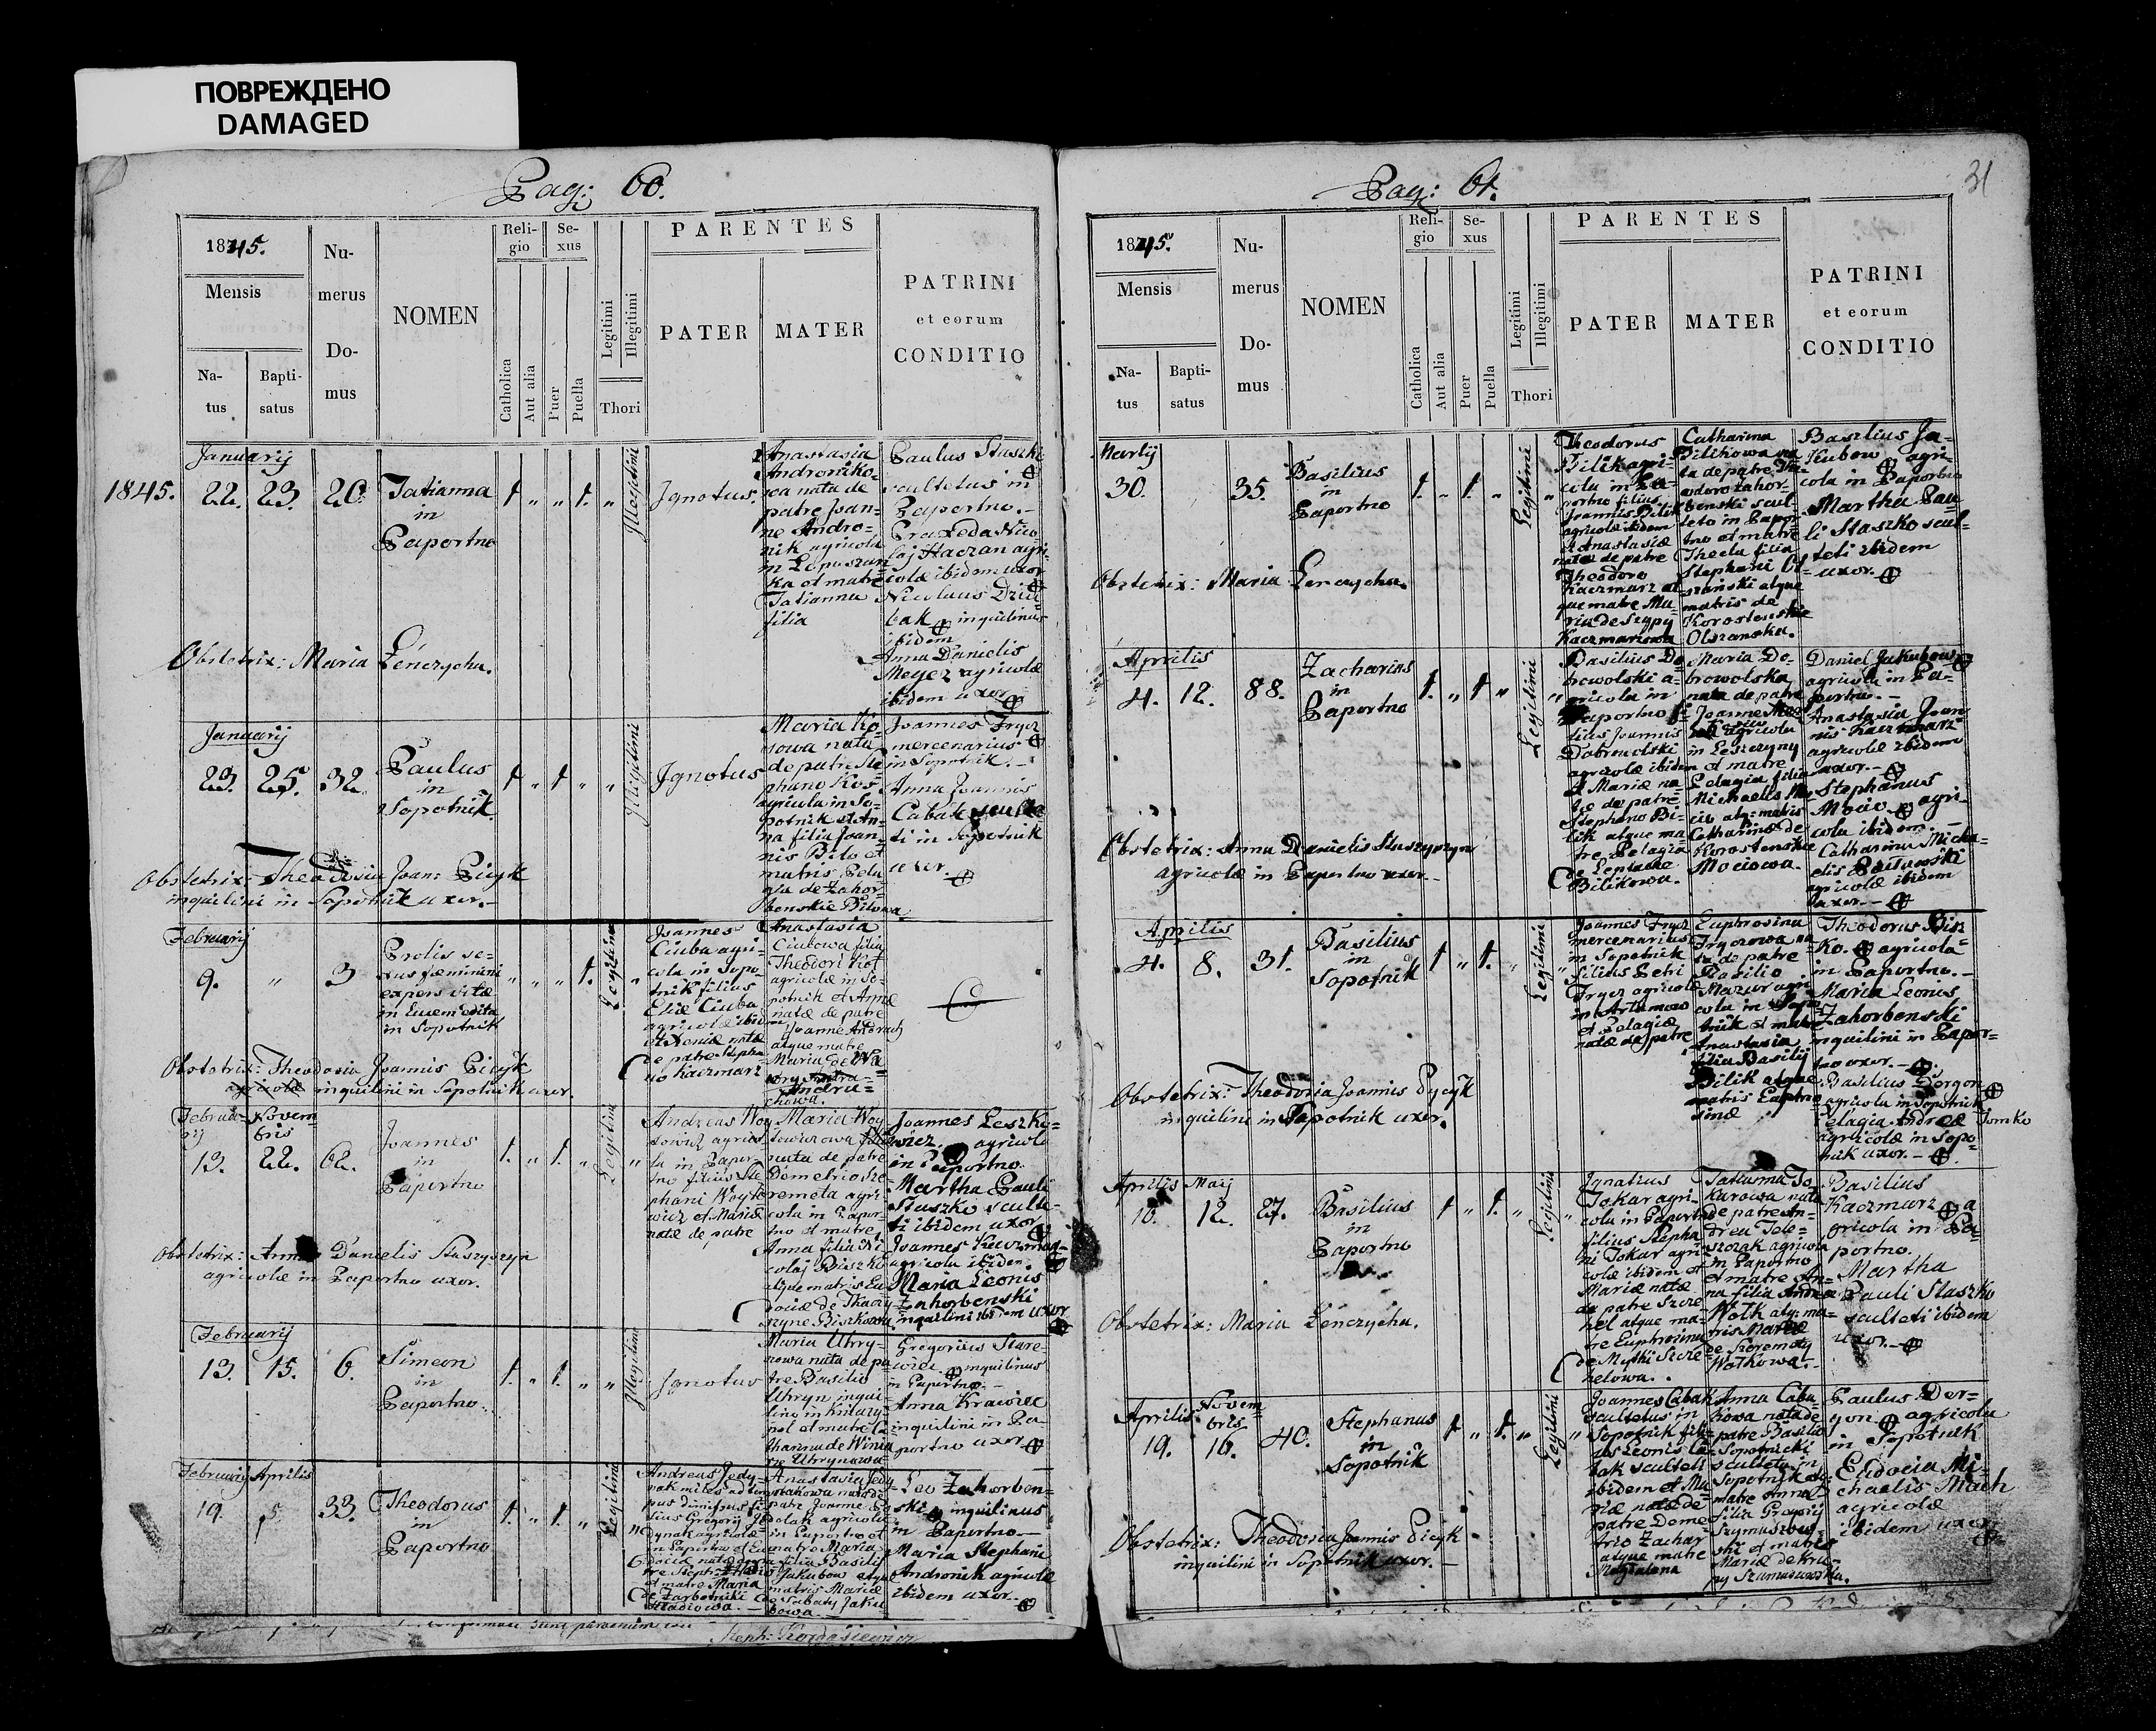 ПОВРЕЖДЕНО
DAMAGED
Pag: 60.
1845.
Mensis
Na-
tus
Bapti-
satus
Nu-
merus
Do-
mus
NOMEN
Reli-
gio
Catholica
Aut alia
Se-
xus
Puer
Puella
Legitimi
Illegitimi
Thori
PARENTES
PATER
MATER
PATRINI
et eorum
CONDITIO
1845.
Januarij
22. 23. 20.
Tatianna
in
Paportno
Illegitimi
Ignotus.
Anastasia
Androniko-
wa nata de
patre Joan-
ne Andro-
nik agricola
in Lopuszan
ka et matre
Tatianna
filia
Paulus Staszko
scultetus in
Paportno.-
Praxeda Nico-
laj Haczan agri-
colæ ibidem uxor
Nicolaus Dziu-
bak inquilinus
ibidem
Anna Danielis
Meyez agricolæ
ibidem uxor
Obstetrix: Maria Lenczycha.
Januarij
23. 25. 32.
Paulus
in
Sopotnik.
Illegitimi
Ignotus
Maria Ko-
sowa nata
de patre Ste
phano Kos
agricola in So-
potnik et An-
na filia Joan-
nis Bilo et
matris Pela
gia de Zahor-
benskie Bilowa
Joannes Frycz
mercenarius
in Sopotnik.-
Anna Joannis
Cabak sculte
ti in Sopotnik
uxor.
Obstetrix: Theodosia Joan: Picyk
inquilini in Sopotnik uxor.-
Februarij
9. " 3
Prolis se-
xus fœminini
expers vitæ
in lucem edita
in Sopotnik
Legitimi
Joannes
Ciuba agri-
cola in Sopo-
tnik filius
Eliæ Ciuba
agricolæ ibid
et Xeniæ natæ
de patre Stepha
no Kaczmarz
Anastasia
Ciubowa filia
Theodori Kot
agricolæ in So-
potnik et Annæ
natæ de patre
Joanne Andruch
atque matre
Maria de
Andru-
chowa.
Obstetrix: Theodosia Joannis Picyk
agricolæ inquilini in Sopotnik uxor.
Februa-
rij
Novem
bris
13. 22. 62.
Joannes
in
Paportno
Legitimi
Andreas Woy
towicz agrico-
la in Papor-
tno filius Ste
phani Woyto
wicz et Mariæ
natæ de patre
Maria Woy
towiczowa
nata de patre
Demetrio Sze-
remeta agri-
cola in Papor-
tno et matre
Anna filia Ni
colaj Biszko
atque matris Eu
dociæ de Tkaczy
szyne Biszkowa
Joannes Leszke-
wicz agricola
in Paportno.
Martha Pauli
Staszko sculte-
ti ibidem uxor
Joannes Kaczmar-
agricola ibidem.
Maria Leonis
Zahorbenski
inquilini ibidem uxor
Obstetrix: Anna Danielis Staszyszyn
agricolæ in Paportno uxor.
Februarij
13. 15. 6.
Simeon
in
Paportno.
Illegitimi
Ignotus
Maria Uhry-
nowa nata de pa
tre Basilio
Uhryn inqui-
lino in
et matre Ca
tharina de
Uhrynowa
Gregorius Stare-
wiec inquilinus
in Paportno.-
Anna Krawiec
inquilini in Pa
portno uxor
Februarij Aprilis
19. 5. 33.
Theodorus
in
Paportno
Legitimi
Andreas Jedy-
nak miles ad tem
pus dimissus fi-
lius Gregorij Je
dynak agricolæ
in Paportno et Eu
dociæ natæ de pa
tre Steph:
et matre Maria
de Zarbotniki
Anastasia Jedy-
nakowa nata de
patre Joanne
agricola
in Paportno et
matre Maria
filia Basilij
Jakubow atque
matris Mariæ
de Sabaty Jaku
bowa.
Leo Zahorben-
ski inquilinus
in Paportno.-
Maria Stephani
Andronik agricolæ
ibidem uxor.-
Pag: 61.
31
1845.
Mensis
Na-
tus
Bapti-
satus
Nu-
merus
Do-
mus
NOMEN
Reli-
gio
Catholica
Aut alia
Se-
xus
Puer
Puella
Legitimi
Illegitimi
Thori
PARENTES
PATER
MATER
PATRINI
et eorum
CONDITIO
Martij
30. 35.
Basilius
in
Paportno
Legitimi
Theodorus
Bilik agri-
cola in Pa-
portno filius
Joannis Bilik
agricolæ ibidem
et Anastasiæ
natæ de patre
Theodoro
Kaczmarz at-
que matre Ma
ria de Szypy
Kaczmarowa
Catharina
Bilikowa na
ta de patre The
odoro Zahor-
benski scul
teto in Papor
tno et matre
Thecla filia
Stephani Ol-
szanski atque
matris de
Korostenskie
Olszanska.
Basilius Ja-
kubow agri-
cola in Paportno
Martha Pau
li Staszko scul-
teti ibidem
uxor.
Obstetrix: Maria Lenczycha.
Aprilis
4. 12. 88.
Zacharias
in
Paportno
Legitimi
Basilius Do
browolski a-
gricola in
Paportno fi-
lius Joannis
Dobrowolski
agricolæ ibidem
et Mariæ na-
tæ de patre
Stephano Bi-
lik atque ma
tre Pelagia
de
Bilikowa.
Maria Do-
browolska
nata de patre
Joanne
agricola
in Leszczyny
et matre
Pelagia filia
Michaelis
atq: matris
Catharinæ de
Korostenskie
Mociowa.
Daniel Jakubow
agricola in Pa-
portno.-
Anastasia Joan
nis Kaczmarz
agricolæ ibidem
uxor.-
Stephanus
Mocio agri-
cola ibidem.-
Catharina Micha-
elis
agricolæ ibidem
uxor.-
Obstetrix: Anna Danielis Staszyszyn
agricolæ in Paportno uxor.-
Aprilis
4. 8. 31.
Basilius
in
Sopotnik
Legitimi
Joannes Frycz
mercenarius
in Sopotnik
filius Petri
Frycz agricolæ
in Artamow
et Pelagiæ
natæ de patre
Euphrosina
Fryczowa na-
ta de patre
Basilio
Mazur agri
cola in Sopo
tnik et matre
Anastasia
filia Basilij
Bilik atque
matris Euphro
sinæ
Theodorus Bisz
ko. agricola
in Paportno.-
Maria Leonis
Zahorbenski
inquilini in Papor-
tno uxor.-
Basilius Dergon
agricola in Sopotnik
Pelagia Andreæ Jomko
agricolæ in Sopo-
tnik uxor.-
Obstetrix: Theodosia Joannis Pycyk
inquilini in Sopotnik uxor.
Aprilis Maij
10. 12. 27.
Basilius
in
Paportno
Legitimi
Ignatius
Tokar agri-
cola in Paportno
filius Stepha
ni Tokar agri-
colæ ibidem et
Mariæ natæ
de patre Szcze
hel atque ma-
tre Euphrosina
de Mytki Szcze-
helowa.
Tatianna To-
karowa nata
de patre An-
drea Tele-
szczak agricola
in Paportno
et matre An-
na filia Andreæ
Wolk atq: ma-
tris Mariæ
de Szeremety
Wolkowa.-
Basilius
Kaczmarz a
gricola in Pa-
portno.
Martha
Pauli Staszko
sculteti ibidem
uxor.-
Obstetrix: Maria Lenczycha.
Aprilis Novem
bris
19. 16. 40.
Stephanus
in
Sopotnik
Legitimi
Joannes Cabak
scultetus in
Sopotnik fili-
us Leonis Ca-
bak sculteti
ibidem et Ma
riæ natæ de
patre Deme-
trio Zachar
atque matre
Magdalena
Anna Caba
kowa nata de
patre Basilio
Sopotnicki
sculteto in
Sopotnik et
matre Anna
filia Gregorij
ski et matris
Mariæ de Kru-
py
Paulus Der-
gon agricola
in Sopotnik
Eudocia Mi-
chaelis Mach
agricolæ
ibidem uxor
Obstetrix: Theodosia Joannis Picyk
inquilini in Sopotnik uxor.-